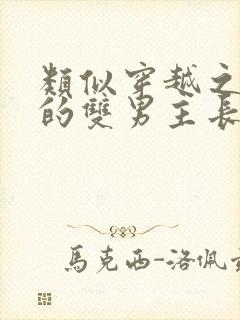 類似穿越之
的雙男主長
馬克西-洛佩